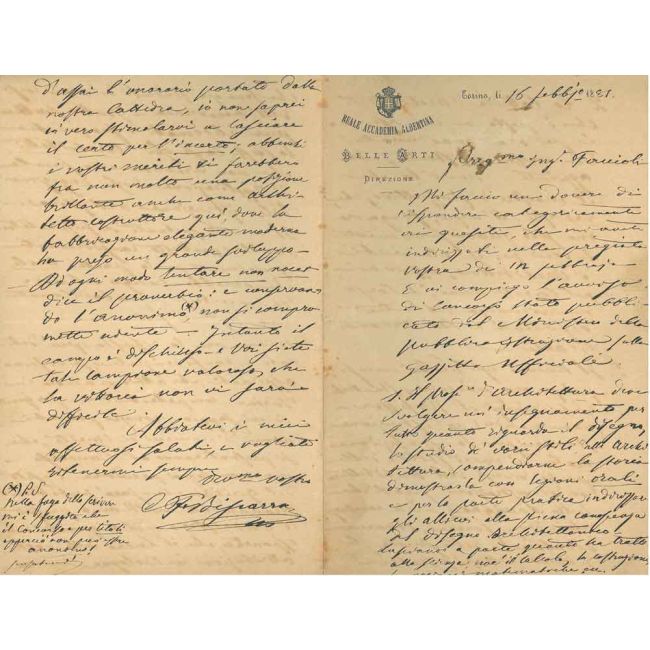 Torino, li 16 febbjo 1881.
REALE ACCADEMIA ALBERTINA
DI
BELLE ARTI
DIREZIONE
Ingr. Faccioli
Mi faccio un dovere di
rispondere categoricamente
ai quesiti, che mi avete
indirizzati nella pregiata
vostra di 12 febbjo
E vi compiego l'avviso
di concorso stato pubbli-
cato dal Ministero della
pubblica Istruzione sulla
Gazzetta Ufficiale
1. Il Profre d'Architettura deve
svolgere un insegnamento per
tutto quanto riguarda il disegno,
lo studio di varii stili dell'Archi-
tettura, compendiarne la storia
dimostrarla con lezioni orali
e per la parte pratica indirizzare
gli allievi alla piena conoscenza
del disegno Architettonico
lasciando a parte quanto ha tratto
alla scienza, cioè il calcolo, la costruzione,
matematiche ecc.
d'assai l'onorario portato dalla
nostra Cattedra, io non saprei
in vero stimolarvi a lasciare
il certo per l'incerto, abbenchè
i vostri meriti vi farebbero
fra non molto una posizione
brillante anche come archi-
tetto costruttore qui dove la
fabbricazione elegante moderna
ha preso un grande sviluppo.
Ad ogni modo tentare non nuoce
dice il proverbio: e conservan-
do l'anonimo (*) non si compro-
mette niente. Intanto il
campo è dischiuso e voi siete
tale campione valoroso, che
la vittoria non vi sarà
difficile.
Abbiatevi i miei
affettuosi saluti, e vogliate
ritenermi sempre
vostro
C. F. Biscarra
(*) P.S.
Nella foga dello scrivere
mi è sfuggito che
il Concorso è per titoli
epperciò non può essere
anonimo!